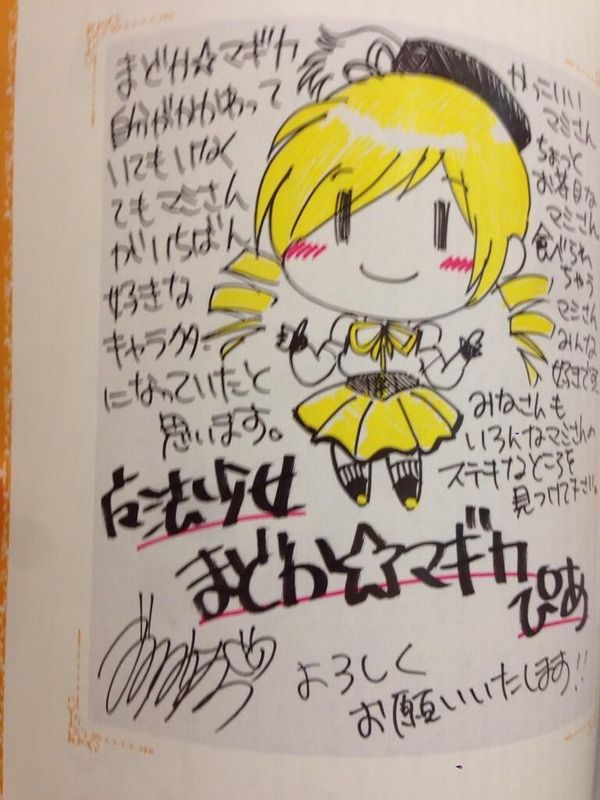 まどか☆マギカ
自分がかかわって
いてもいけなく
てもマミさん
がいちばん
好きな
キャラクター
になっていたと
思います。
かっこいい
マミさん
ちょっと
お茶目な
マミさん
食べられ
ちゃう
マミさん
みんな
好きです
みなさんも
いろんなマミさんの
ステキなところを
見つけて下さい。
魔法少女
まどか☆マギカ
ぴあ
よろしく
お願いいたします!!